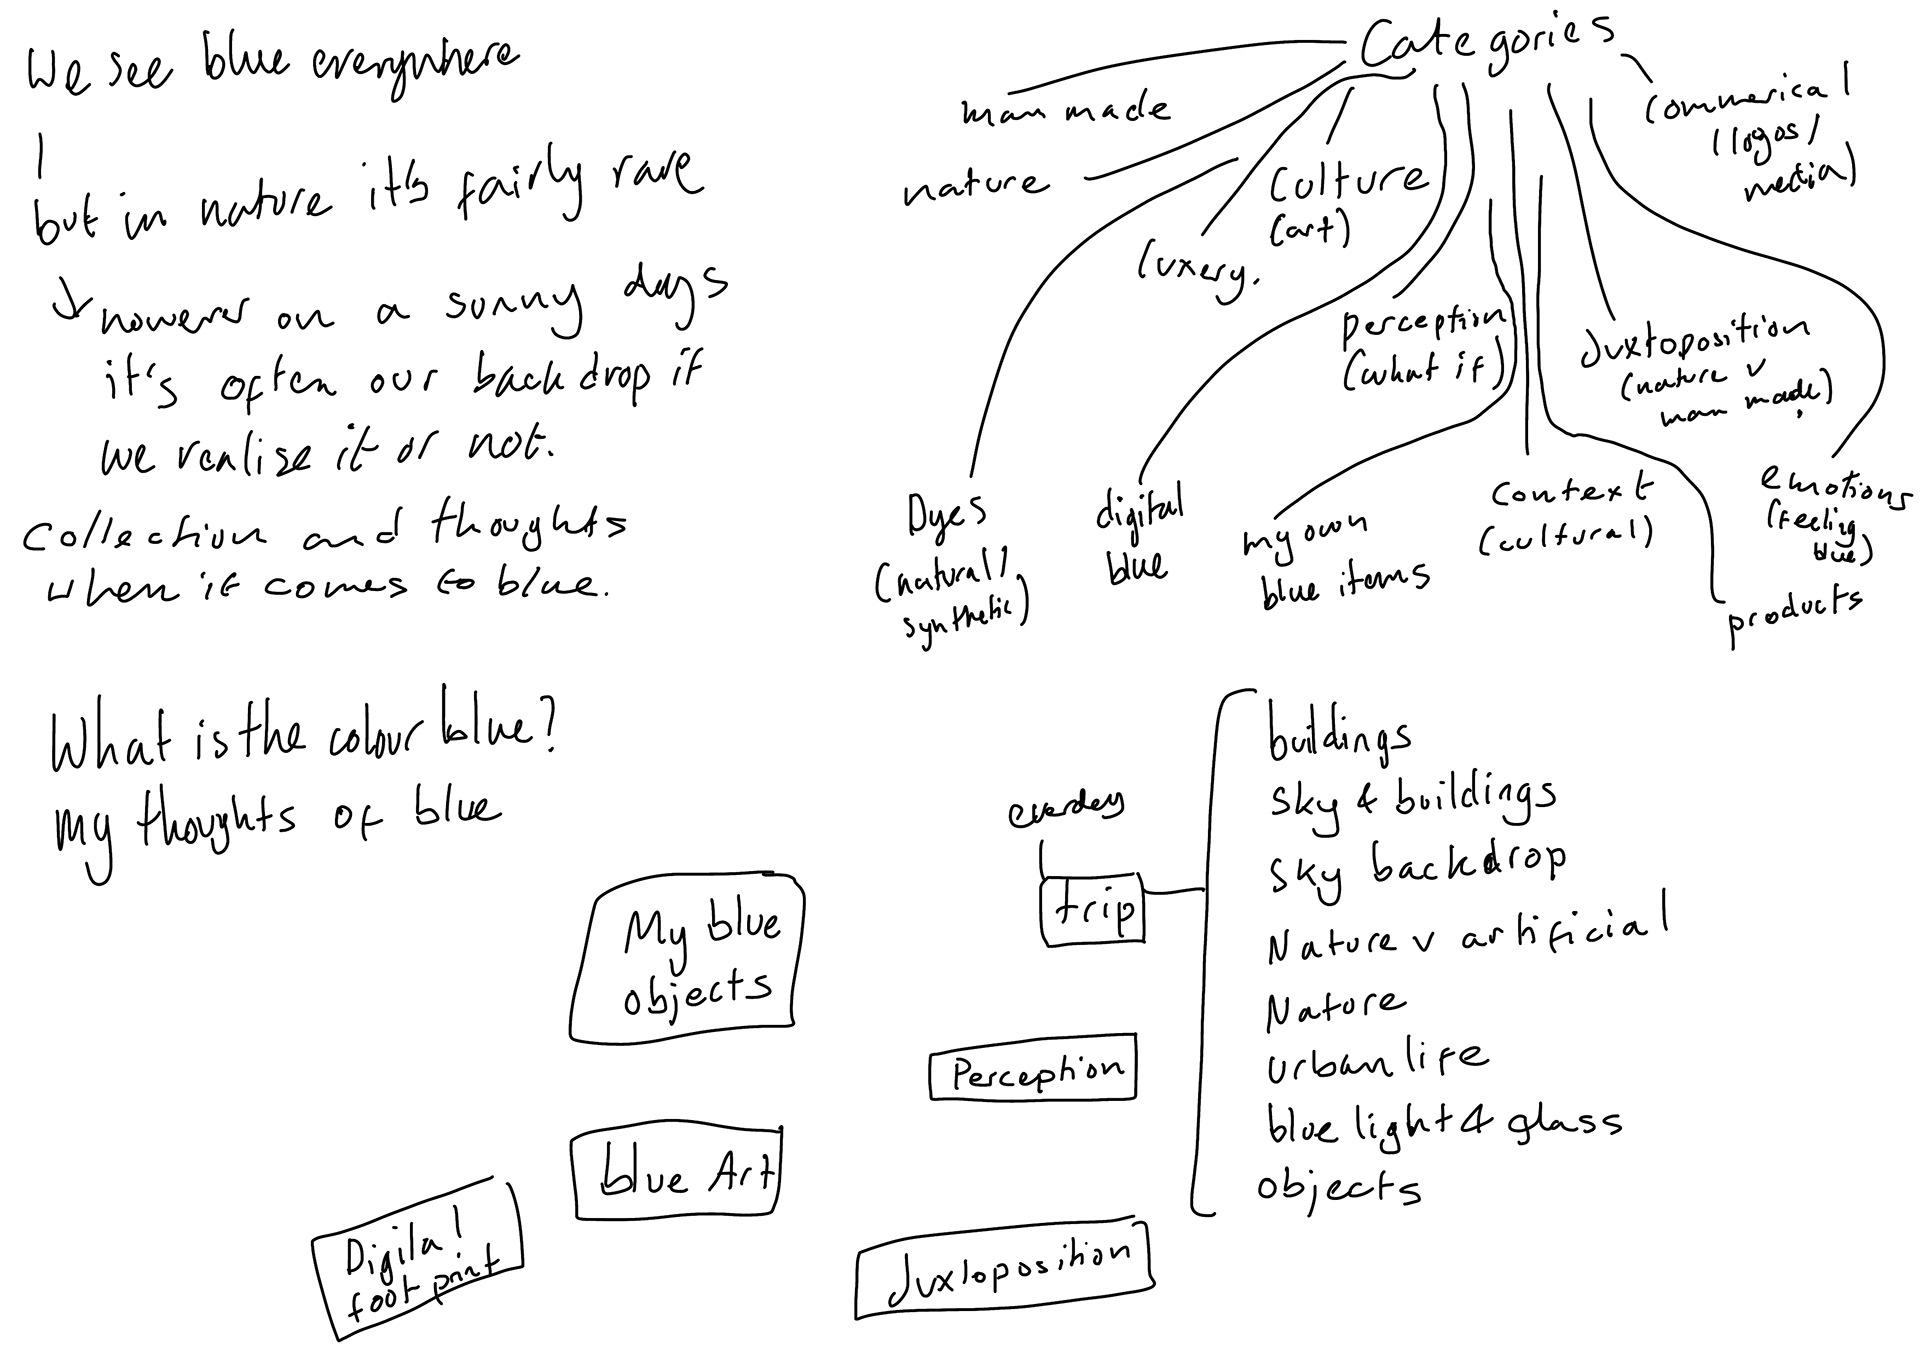 We see blue everywhere
but in nature it's fairly rare
however on a sunny days
it's often our backdrop if
we realise it or not.
collection and thoughts
when it comes to blue.
Categories
man made
nature
luxery.
Culture
(art)
Commerical
(logos/
media)
perception
(what if)
Juxtoposition
(nature v
man made)
Dyes
(natural/
synthetic)
digital
blue
my own
blue items
context
(cultural)
emotions
(feeling
blue)
products
What is the colour blue?
my thoughts of blue
My blue
objects
everday
trip
buildings
Sky & buildings
Sky backdrop
Nature v artificial
Nature
urban life
blue light & glass
objects
Perception
blue Art
Digital
foot print
Juxtoposition